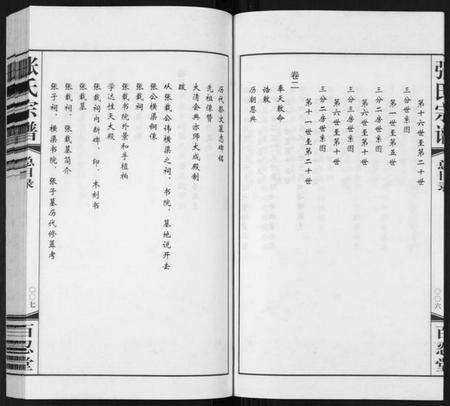 张氏宗谱
总目录
〇〇六
百忍堂
第十六世至第二十世
三分世系图
第一世至第五世
三分二房世系图
第六世至第十世
三分三房世系图
第六世至第十世
三分二房世系图
第十一世至第二十世
卷二
奉天敕命
诰敕
历朝恩典
历代祭文墓志碑铭
先祖像赞
大清会典亦师大成殿制
跋
从张载公讳横渠之祠、书院、墓地说开去
张公横渠铜像
张载祠
张载书院外景和手植柏
学达性天大殿
张载祠内新碑、印、木刻书
张载墓
张载祠、张载墓简介
张子祠、横渠书院、张子墓历代修葺考
张氏宗谱
总目录
〇〇七
百忍堂